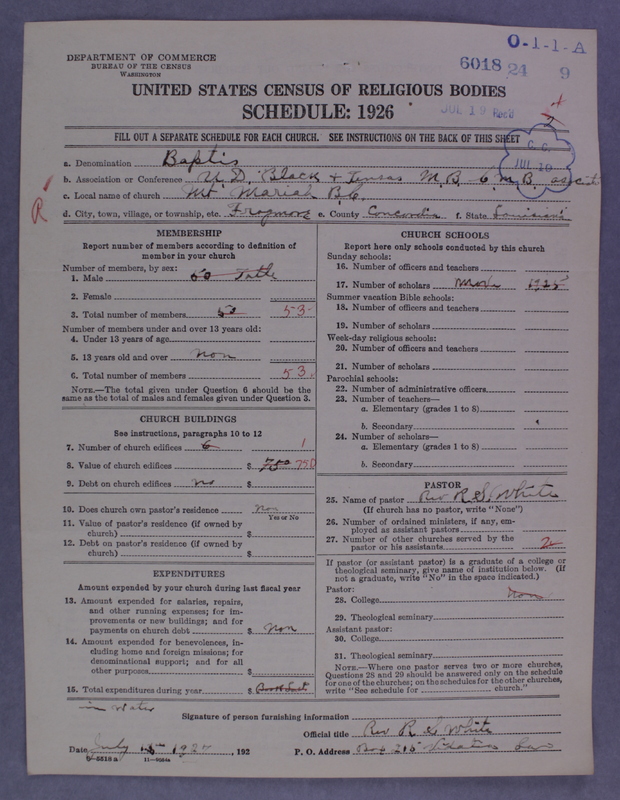 O-1-1-A
DEPARTMENT OF COMMERCE
BUREAU OF THE CENSUS
WASHINGTON
6018 24 9
UNITED STATES CENSUS OF RELIGIOUS BODIES
SCHEDULE: 1926
JUL 19 Rec'd
FILL OUT A SEPARATE SCHEDULE FOR EACH CHURCH. SEE INSTRUCTIONS ON THE BACK OF THIS SHEET
C. C.
JUL 19
a. Denomination Baptis
b. Association or Conference Black + Tensas M. B.
c. Local name of church Mt Mariah B. C.
R
d. City, town, village, or township, etc. Frogmore e. County Concordia f. State Louisiana
MEMBERSHIP
Report number of members according to definition of
member in your church
Number of members, by sex:
1. Male
2. Female
3. Total number of members 53 53
Number of members under and over 13 years old:
4. Under 13 years of age
5. 13 years old and over non
6. Total number of members 53
NOTE.—The total given under Question 6 should be the
same as the total of males and females given under Question 3.
CHURCH BUILDINGS
See instructions, paragraphs 10 to 12
7. Number of church edifices 1
8. Value of church edifices $ 750 750
9. Debt on church edifices no $
10. Does church own pastor's residence non
Yes or No
11. Value of pastor's residence (if owned by
church) $
12. Debt on pastor's residence (if owned by
church) $
EXPENDITURES
Amount expended by your church during last fiscal year
13. Amount expended for salaries, repairs,
and other running expenses; for im-
provements or new buildings; and for
payments on church debt $ non
14. Amount expended for benevolences, in-
cluding home and foreign missions; for
denominational support; and for all
other purposes $
15. Total expenditures during year $
in water
CHURCH SCHOOLS
Report here only schools conducted by this church
Sunday schools:
16. Number of officers and teachers
17. Number of scholars 1925
Summer vacation Bible schools:
18. Number of officers and teachers
19. Number of scholars
Week-day religious schools:
20. Number of officers and teachers
21. Number of scholars
Parochial schools:
22. Number of administrative officers
23. Number of teachers—
a. Elementary (grades 1 to 8)
b. Secondary
24. Number of scholars—
a. Elementary (grades 1 to 8)
b. Secondary
PASTOR
25. Name of pastor Rev R S White
(If church has no pastor, write "None")
26. Number of ordained ministers, if any, em-
ployed as assistant pastors
27. Number of other churches served by the
pastor or his assistants 2
If pastor (or assistant pastor) is a graduate of a college or
theological seminary, give name of institution below. (If
not a graduate, write "No" in the space indicated.)
Pastor:
28. College non
29. Theological seminary
Assistant pastor:
30. College
31. Theological seminary
NOTE.—Where one pastor serves two or more churches,
Questions 28 and 29 should be answered only on the schedule
for one of the churches; on the schedules for the other churches,
write "See schedule for church."
Signature of person furnishing information
Official title Rev R S White
Date July 1927, 192 P. O. Address Box 216
8-5518 a